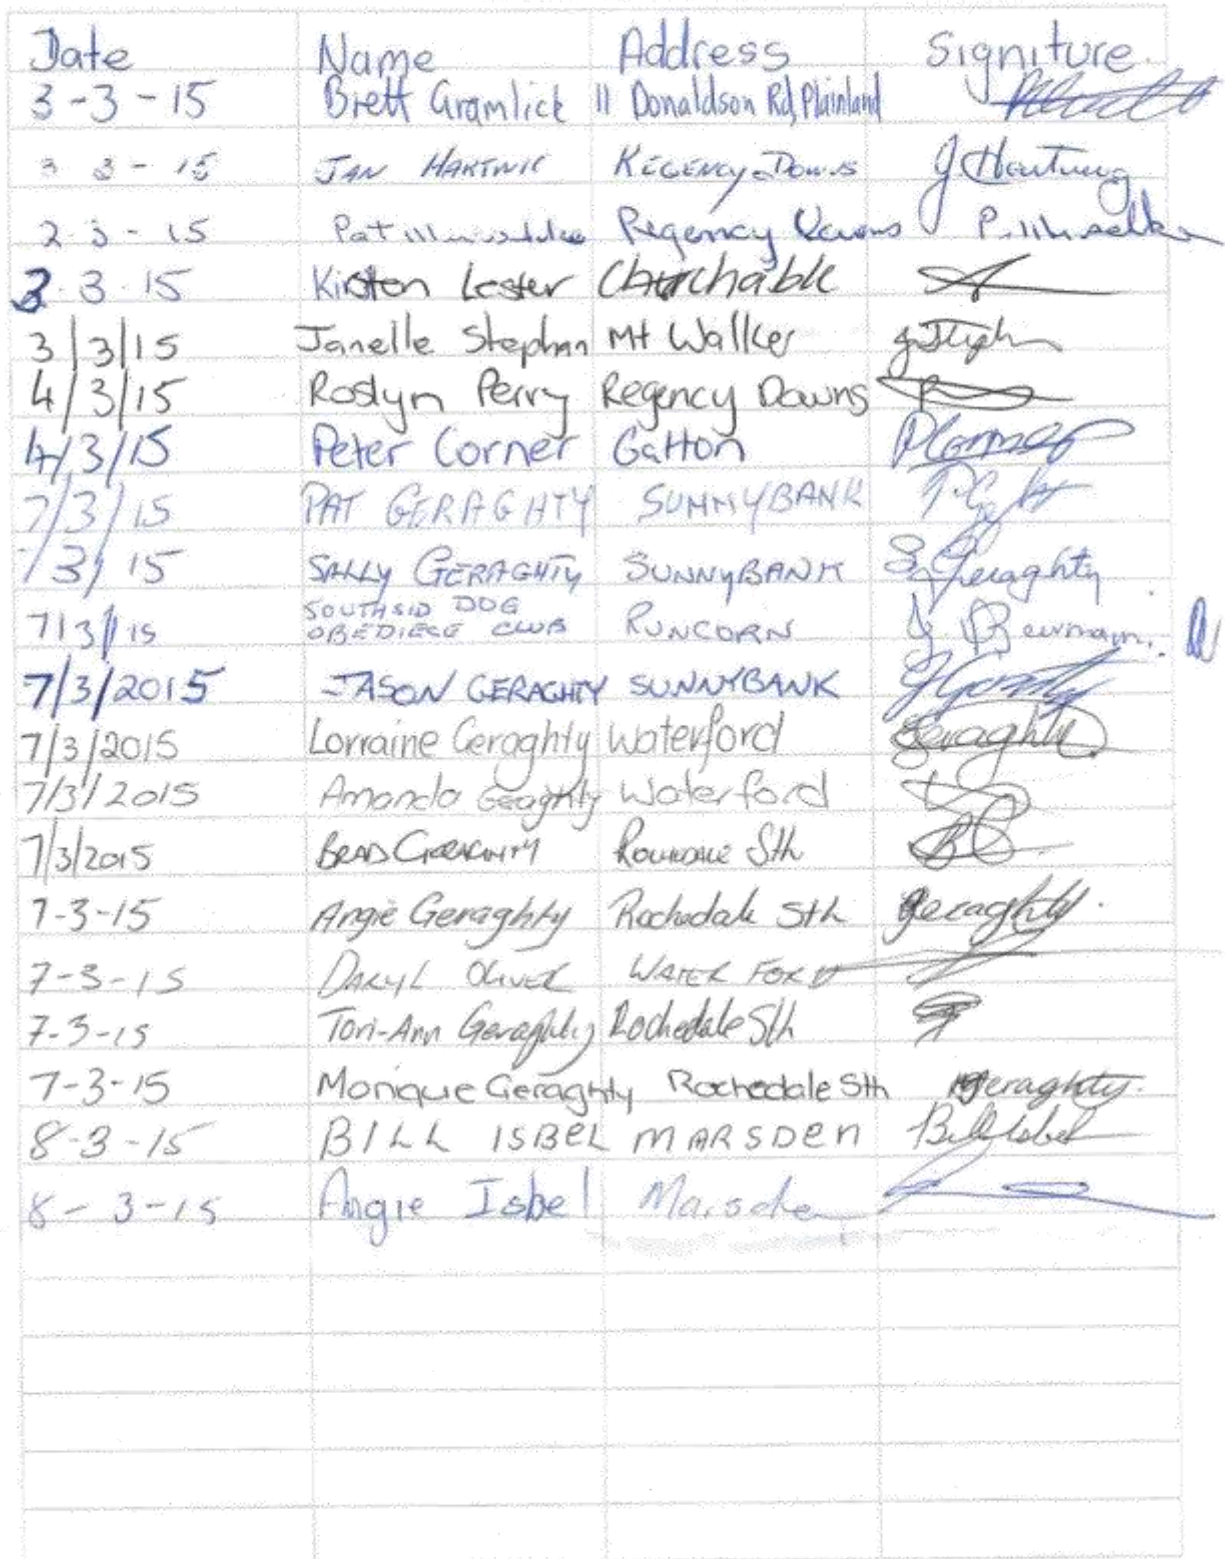 Date Name Address Signiture.
3-3-15 Brett Gramlick 11 Donaldson Rd, Plainland
3 3-15 JAN REGENCY DOWNS J Hartung
2-3-15 Pat Regency Downs
3-3-15 Kirsten Lester Churchable
3/3/15 Janelle Stephan Mt Walker
4/3/15 Roslyn Perry Regency Downs
4/3/15 Peter Corner Gatton
7/3/15 PAT GERAGHTY SUNNYBANK
7/3/15 SALLY GERAGHTY SUNNYBANK S Geraghty
SOUTHSID DOG
7/3/15 OBEDIECE CLUB RUNCORN
7/3/2015 JASON GERAGHTY SUNNYBANK
7/3/2015 Lorraine Geraghty Waterford Geraghty
7/3/2015 Amanda Geaghty Waterford
7/3/2015 BRAD GERAGHTY Sth
7-3-15 Angie Geraghty Rochedale Sth geraghty.
7-3-15 DARYL OLIVER WATERFORD
7-3-15 Tori-Ann Geraghty Rochedale Sth
7-3-15 Monique Geraghty Rochedale Sth geraghty.
8-3-15 BILL ISBEL MARSDEN Bill Isbel
8-3-15 Angie Isbel Marsden